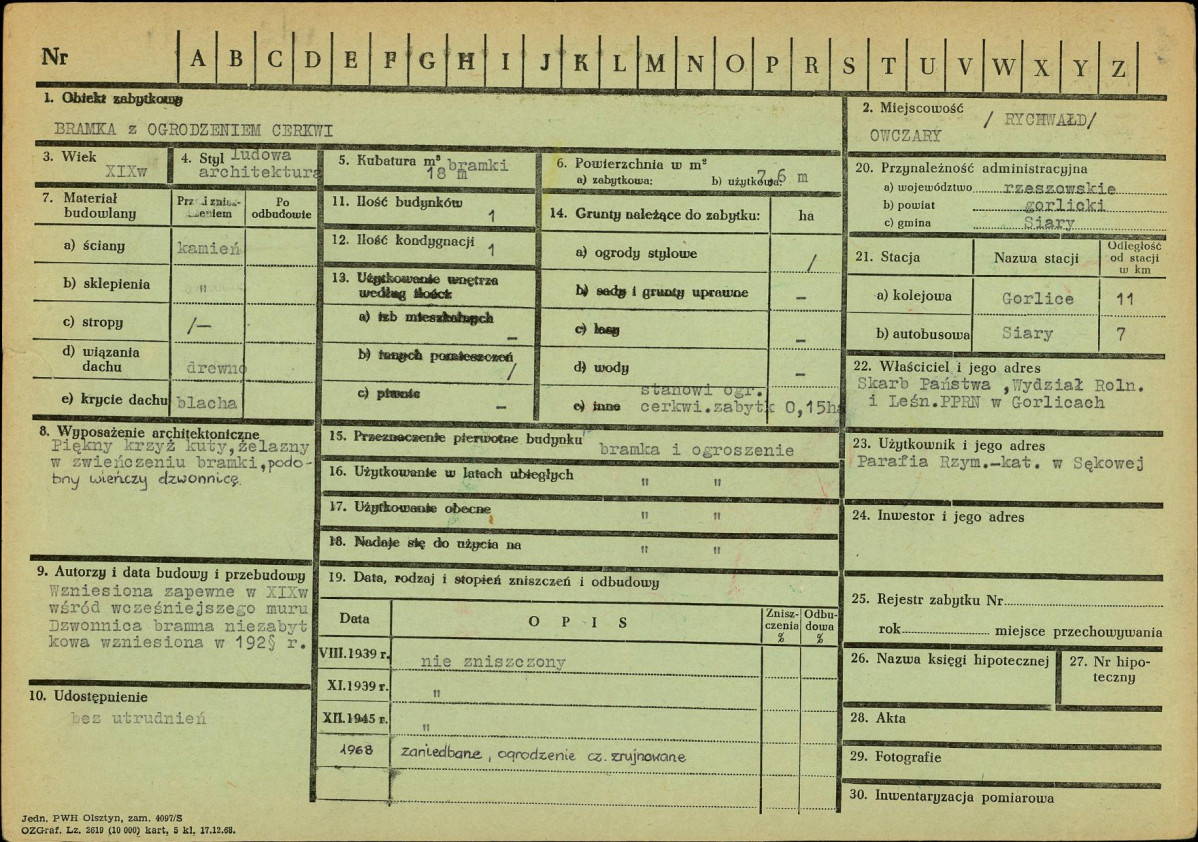 Nr A B C D E F G H I J K L M N O P R S T U V W X Y Z
1. Obiekt zabytkowy
BRAMKA z OGRODZENIEM CERKWI
2. Miejscowość
/ RYCHWAŁD/
OWCZARY
3. Wiek
XIXw
4. Styl ludowa
architektura
5. Kubatura m³ bramki
18 m
6. Powierzchnia w m²
a) zabytkowa: b) użytkowa:
7,6 m
20. Przynależność administracyjna
a) województwo rzeszowskie
b) powiat gorlicki
c) gmina Siary
7. Materiał
budowlany
Przed znisz-
czeniem
Po
odbudowie
a) ściany kamień
b) sklepienia "
c) stropy /—
d) wiązania
dachu drewno
e) krycie dachu blacha
11. Ilość budynków
1
12. Ilość kondygnacji
1
13. Użytkowanie wnętrza
według ilości:
a) izb mieszkalnych
–
b) innych pomieszczeń
/
c) piwnic
–
14. Grunty należące do zabytku: ha
a) ogrody stylowe /
b) sady i grunty uprawne –
c) lasy –
d) wody –
stanowi ogr.
e) inne cerkwi.zabytk 0,15ha
21. Stacja Nazwa stacji
Odległość
od stacji
w km
a) kolejowa Gorlice 11
b) autobusowa Siary 7
22. Właściciel i jego adres
Skarb Państwa ,Wydział Roln.
i Leśn.PPRN w Gorlicach
8. Wyposażenie architektoniczne
Piękny krzyż kuty,żelazny
w zwieńczeniu bramki,podo-
bny wieńczy dzwonnicę.
15. Przeznaczenie pierwotne budynku
bramka i ogroszenie
16. Użytkowanie w latach ubiegłych " "
17. Użytkowanie obecne " "
18. Nadaje się do użycia na " "
23. Użytkownik i jego adres
Parafia Rzym.-kat. w Sękowej
24. Inwestor i jego adres
9. Autorzy i data budowy i przebudowy
Wzniesiona zapewne w XIXw
wśród wcześniejszego muru
Dzwonnica bramna niezabyt
kowa wzniesiona w 192 r.
19. Data, rodzaj i stopień zniszczeń i odbudowy
Data O P I S
Znisz-
czenia
%
Odbu-
dowa
%
VIII.1939 r. nie zniszczony
XI.1939 r. "
XII.1945 r. "
1968 zaniedbane, ogrodzenie cz. zrujnowane
10. Udostępnienie
bez utrudnień
25. Rejestr zabytku Nr
rok miejsce przechowywania
26. Nazwa księgi hipotecznej
27. Nr hipo-
teczny
28. Akta
29. Fotografie
30. Inwentaryzacja pomiarowa
Jedn. PWH Olsztyn, zam. 4097/S
OZGraf. Lz. 2619 (10 000) kart, 5 kl, 17.12.68.